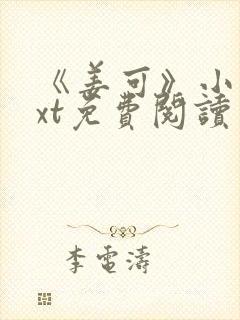 《姜可》小
xt免費閱讀
李電濤